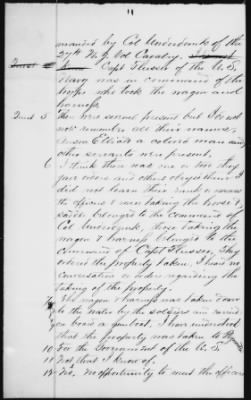 11
manded by Col Underdunk of the
27th N.Y. Vol Cavalry.
Capt Flusser of the U.S.
Navy was in command of the
troops who took the wagon and
harness
Quest 5 There were several present but I do not
not remember all their names,
Anson Elliott a colored man and
other servants were present.
6 I think there was one or two they
gave orders and others obeyed them I
did not learn their rank or names
the officers I seen taking the horse &
saddle belonged to the command of
Col Underdunk, those taking the
wagon & harness belonged to the
command of Capt Flusser, They
ordered the property taken, I heard no
conversation or order regarding the
taking of the property.
7 The wagon & harness was taken down
to the water by the soldiers and carried
on board a gunboat, I have understood
that the property was taken to
10 For the Government of the U.S.
11 Not that I know of.
12 No, no opportunity to meet the officers